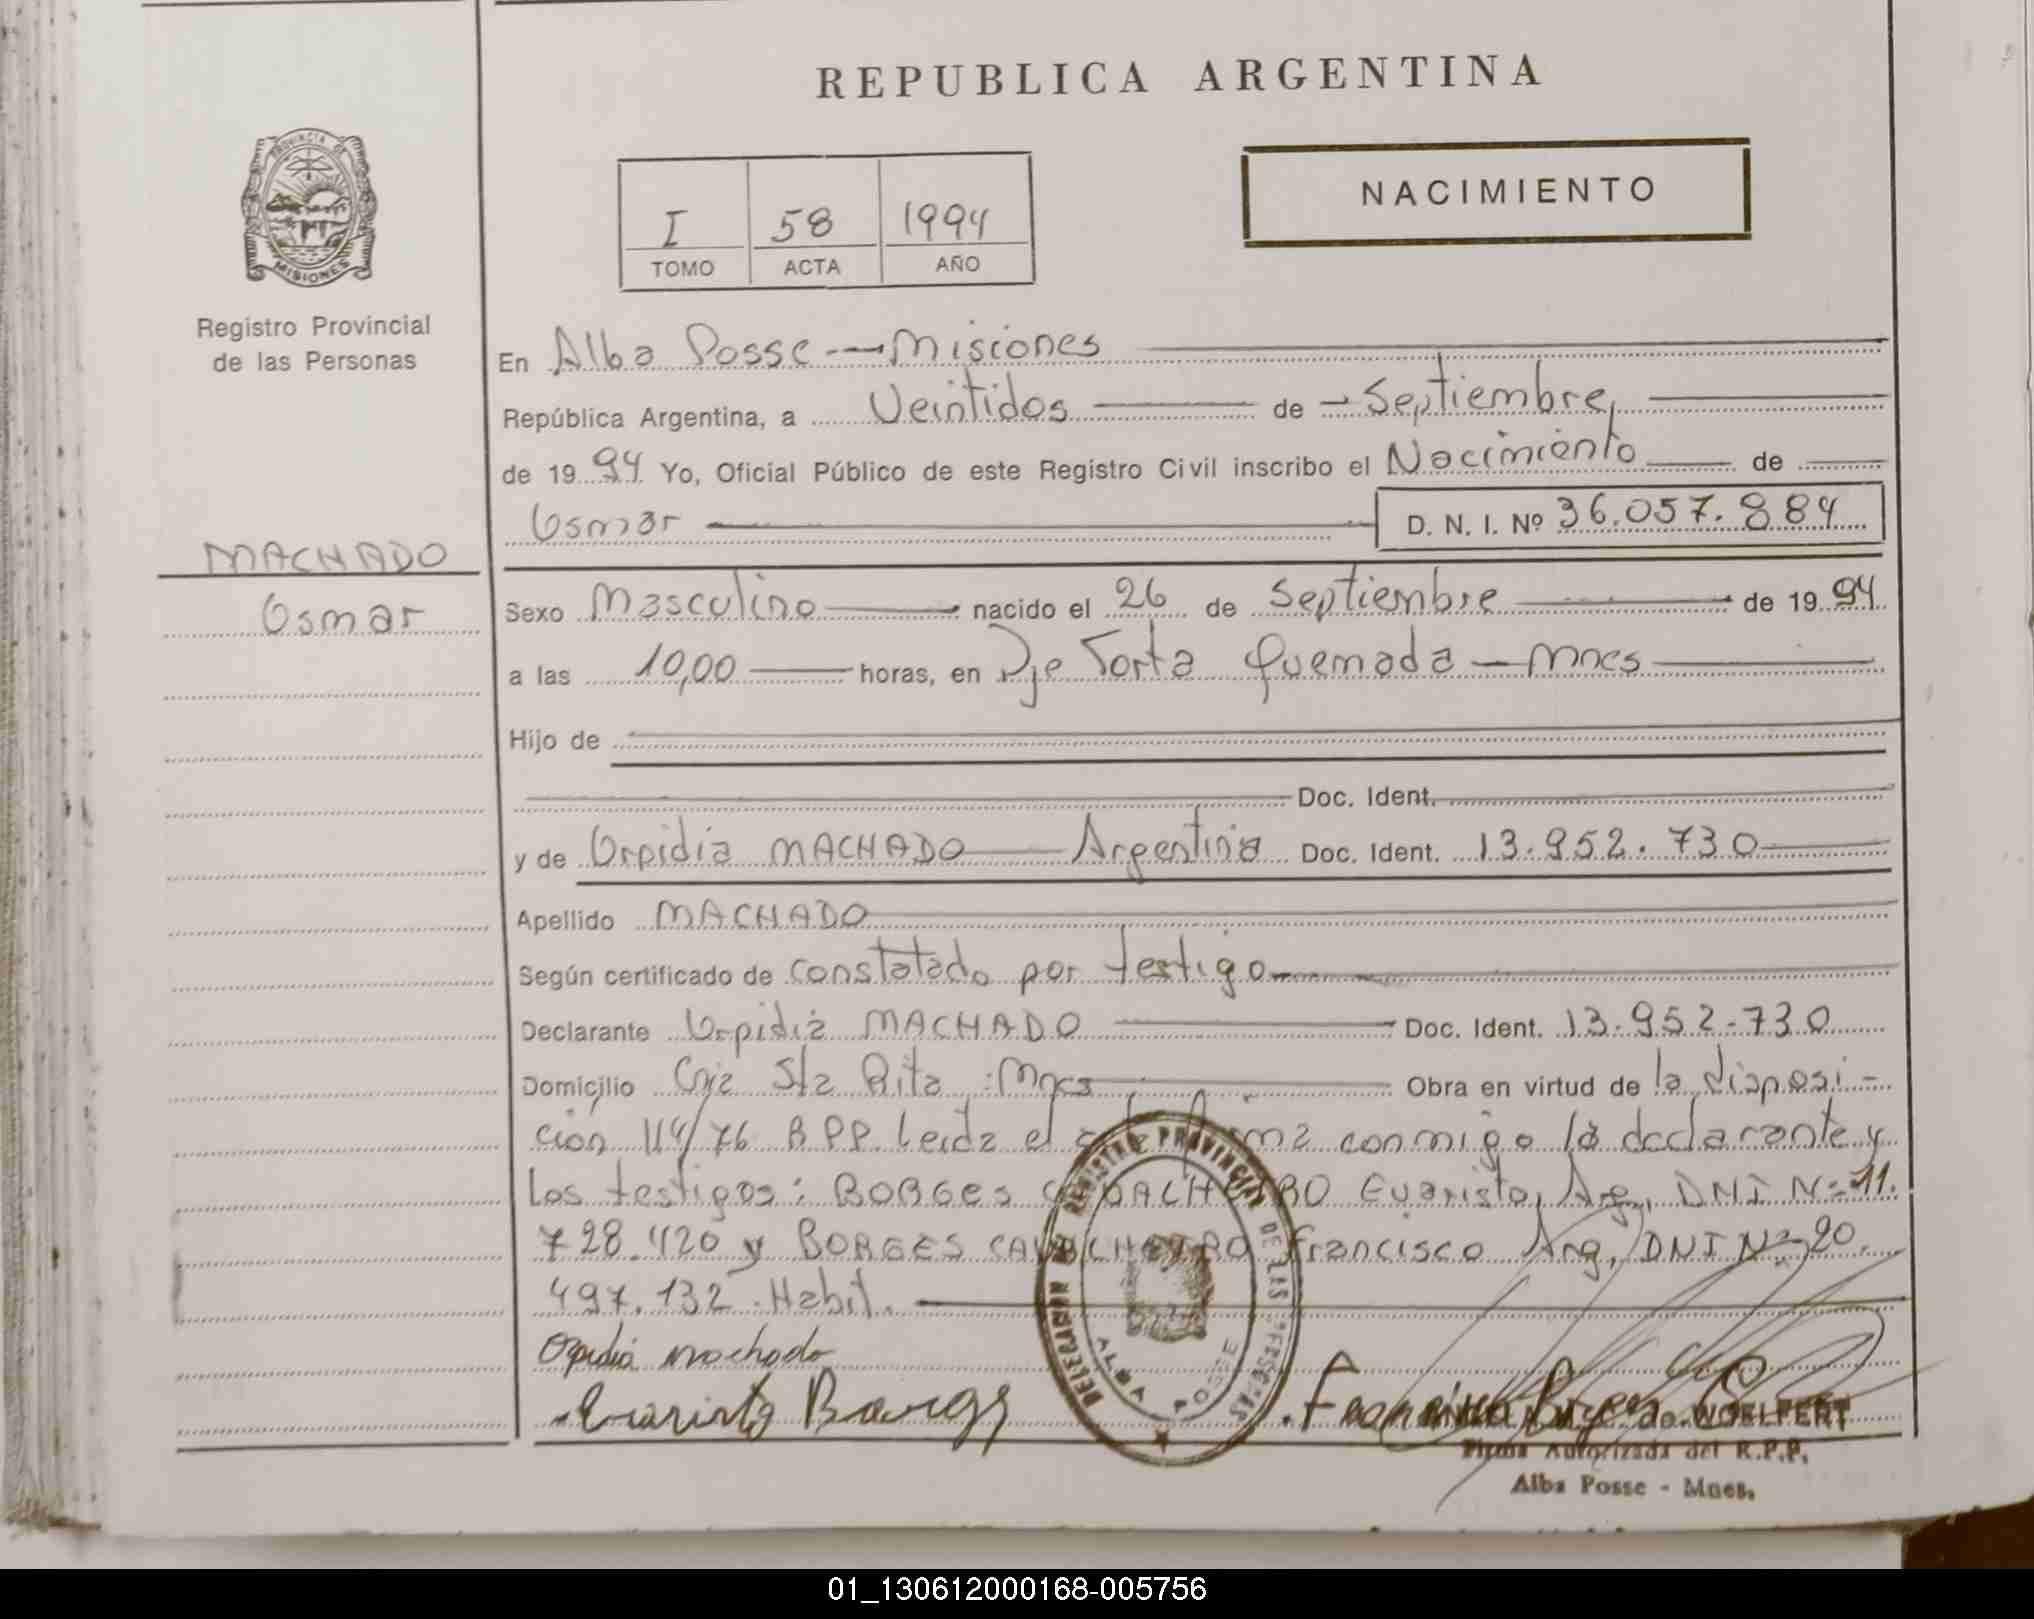 REPUBLICA ARGENTINA
NACIMIENTO
I 58 1994
TOMO ACTA AÑO
PROVINCIA DE
MISIONES
Registro Provincial
de las Personas
MACHADO
Osmar
En Alba Posse - Misiones
República Argentina, a Veintidos de Septiembre,
de 1994 Yo, Oficial Público de este Registro Civil inscribo el Nacimiento de
Osmar D. N. I. Nº 36.057.884
Sexo Masculino nacido el 26 de Septiembre de 1994
a las 10,00 horas, en Pje Torta Quemada - Mnes
Hijo de
Doc. Ident.
y de Orpidia MACHADO Argentina Doc. Ident. 13.952.730
Apellido MACHADO
Según certificado de constatado por testigo
Declarante Orpidia MACHADO Doc. Ident. 13.952-730
Domicilio Cnia Sta Rita - Mnes Obra en virtud de la disposi-
cion 114/76 R.P.P. Leida el firma conmigo la declarante y
los testigos: BORGES Evaristo, Arg, DNI Nº 11.
728.420 y BORGES Francisco Arg, DNI Nº 20.
497.132 - Habil.
Orpidia machado
Evaristo Borges
Francisco Borges
de WOELFERT
Firma Autorizada del R.P.P.
Alba Posse - Mnes.
DELEGACION REGISTRO PROVINCIAL DE LAS PERSONAS
ALBA POSSE
01_130612000168-005756